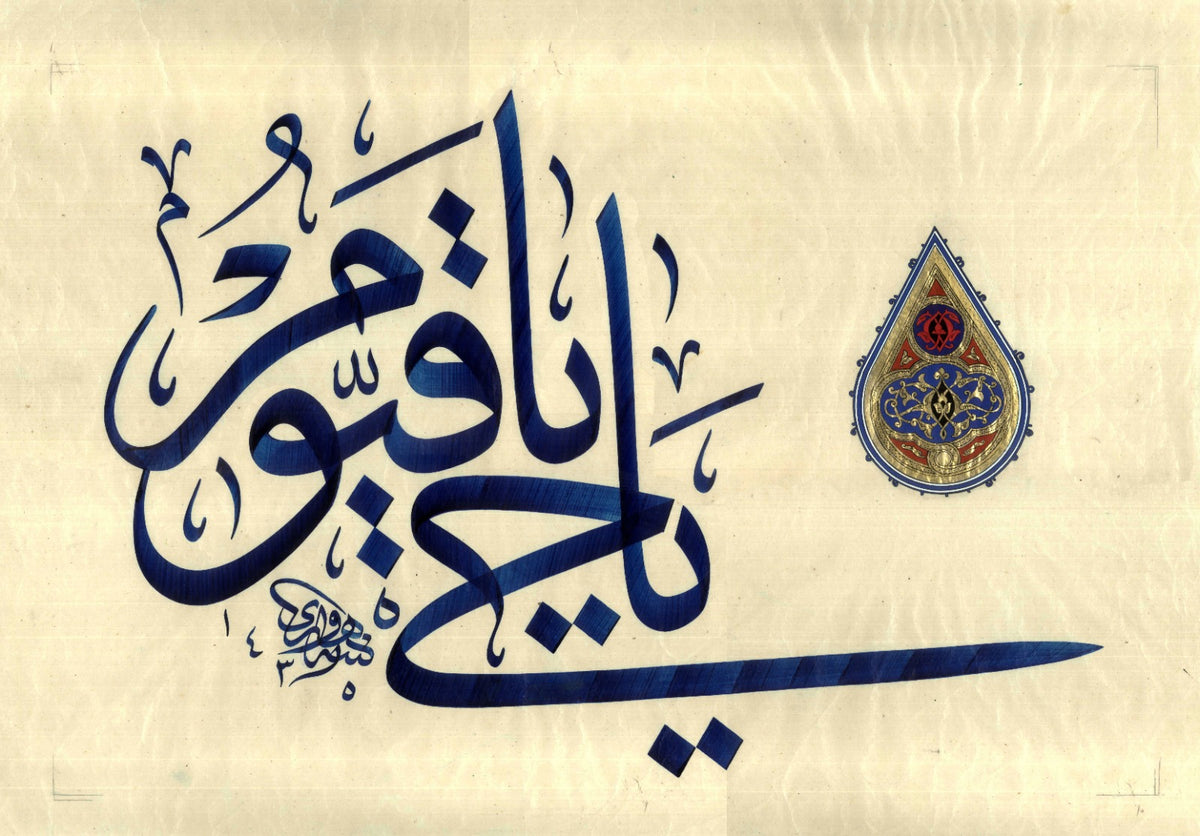 يا حي
يا قيّومُ
١٤٣٥